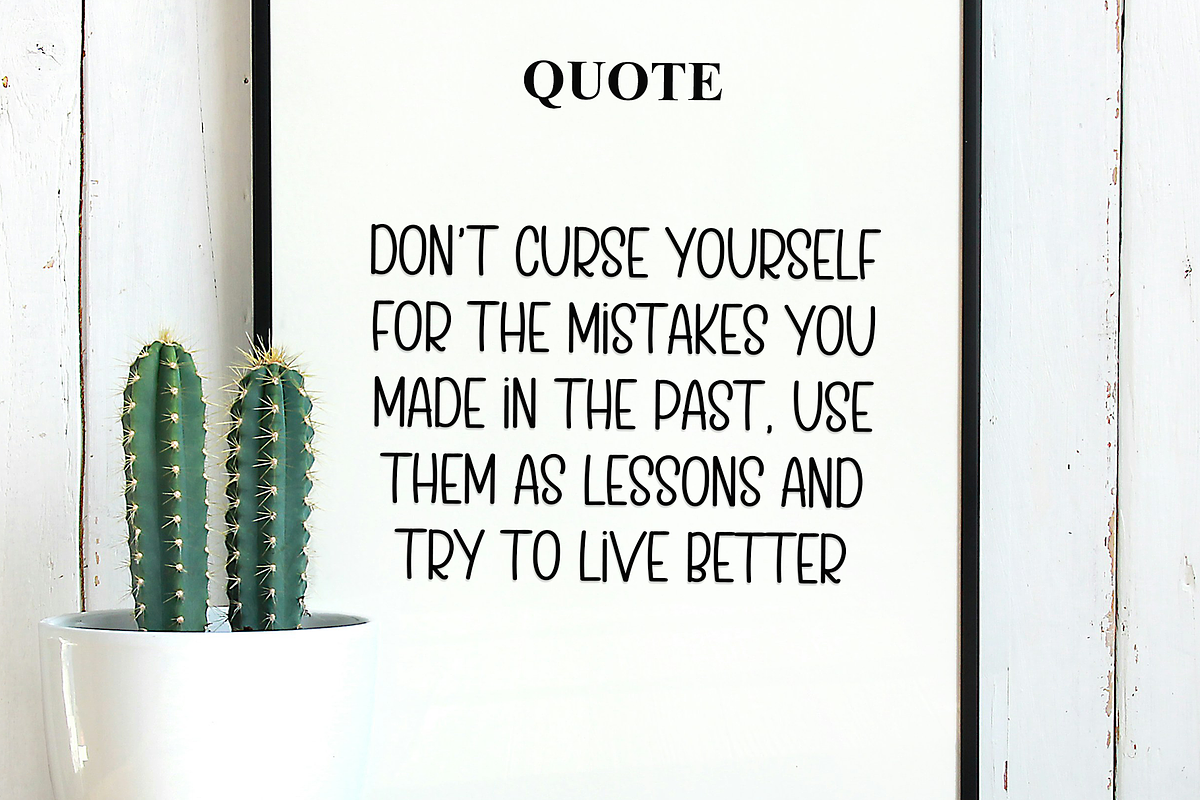 QUOTE
DON'T CURSE YOURSELF
FOR THE MiSTAKES YOU
MADE iN THE PAST, USE
THEM AS LESSONS AND
TRY TO LiVE BETTER